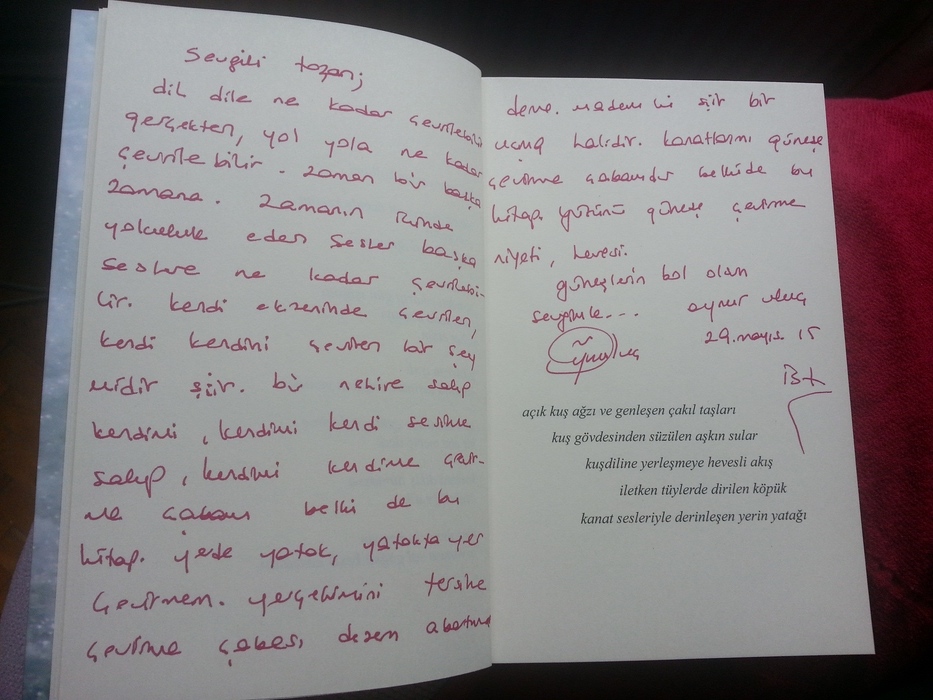 Sevgili tozan;
dil dile ne kadar çevrilebilir
gerçekten, yol yola ne kadar
çevrilebilir. zaman bir başka
zamana. zamanın içinde
yolculuk eden sesler başka
seslere ne kadar çevrilebi-
lir. kendi ekseninde çevrilen,
kendi kendini çeviren bir şey
midir şiir. bir nehire salıp
kendimi, kendimi kendi sesime
salıp, kendimi kendime çevir-
me çabam belki de bu
kitap. yerde yatak, yatakta yer
çevirmem. yerçekimini tersine
çevirme çabası desem abartma
deme. madem ki şiir bir
uçma halidir. kanatlarımı güneşe
çevirme çabamdır belki de bu
kitap. yüzünü güneşe çevirme
niyeti, hevesi.
güneşlerin bol olsun
sevgimle... aynur uluç
29.mayıs 15
açık kuş ağzı ve genleşen çakıl taşları
kuş gövdesinden süzülen aşkın sular
kuşdiline yerleşmeye hevesli akış
iletken tüylerde dirilen köpük
kanat sesleriyle derinleşen yerin yatağı